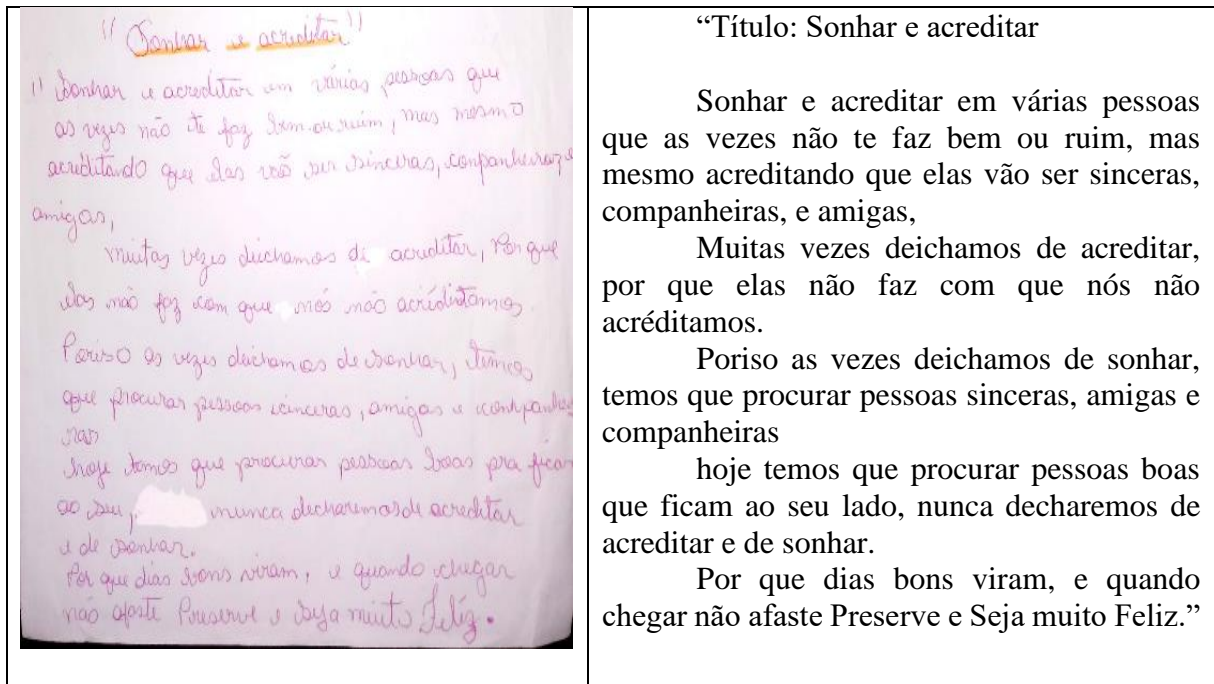 "Sonhar e acreditar"
" Sonhar e acreditar em várias pessoas que
as vezes não te faz bem ou ruim, mas mesmo
acreditando que elas vão ser sinceras, conpanheiraz e
amigas,
muitas vezes deichamos de acreditar, Por que
elas não faz com que nós não acréditamos.
Poriso as vezes deichamos de sonhar, temos
que procurar pessoas sinceras, amigas e companhei
ras
hoje temos que procurar pessoas boas pra ficar
ao seu, nunca decharemos de acreditar
e de sonhar.
Por que dias bons viram, e quando chegar
não afaste Preserve e seja muito Feliz.
“Título: Sonhar e acreditar
Sonhar e acreditar em várias pessoas
que as vezes não te faz bem ou ruim, mas
mesmo acreditando que elas vão ser sinceras,
companheiras, e amigas,
Muitas vezes deichamos de acreditar,
por que elas não faz com que nós não
acréditamos.
Poriso as vezes deichamos de sonhar,
temos que procurar pessoas sinceras, amigas e
companheiras
hoje temos que procurar pessoas boas
que ficam ao seu lado, nunca decharemos de
acreditar e de sonhar.
Por que dias bons viram, e quando
chegar não afaste Preserve e Seja muito Feliz.”